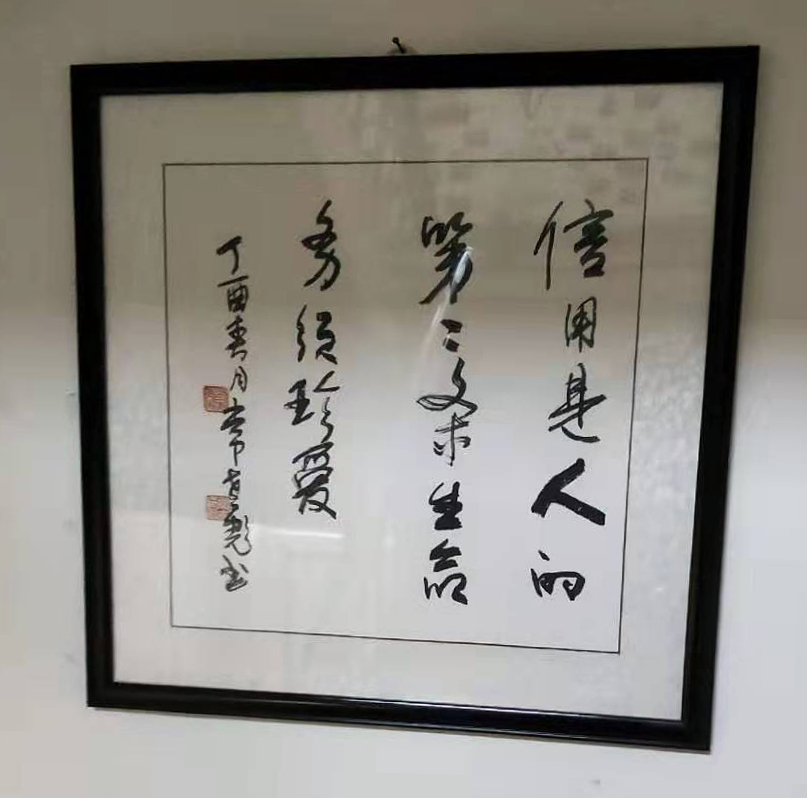 信用是人的
第二条生命
务须珍爱
丁酉春月常书